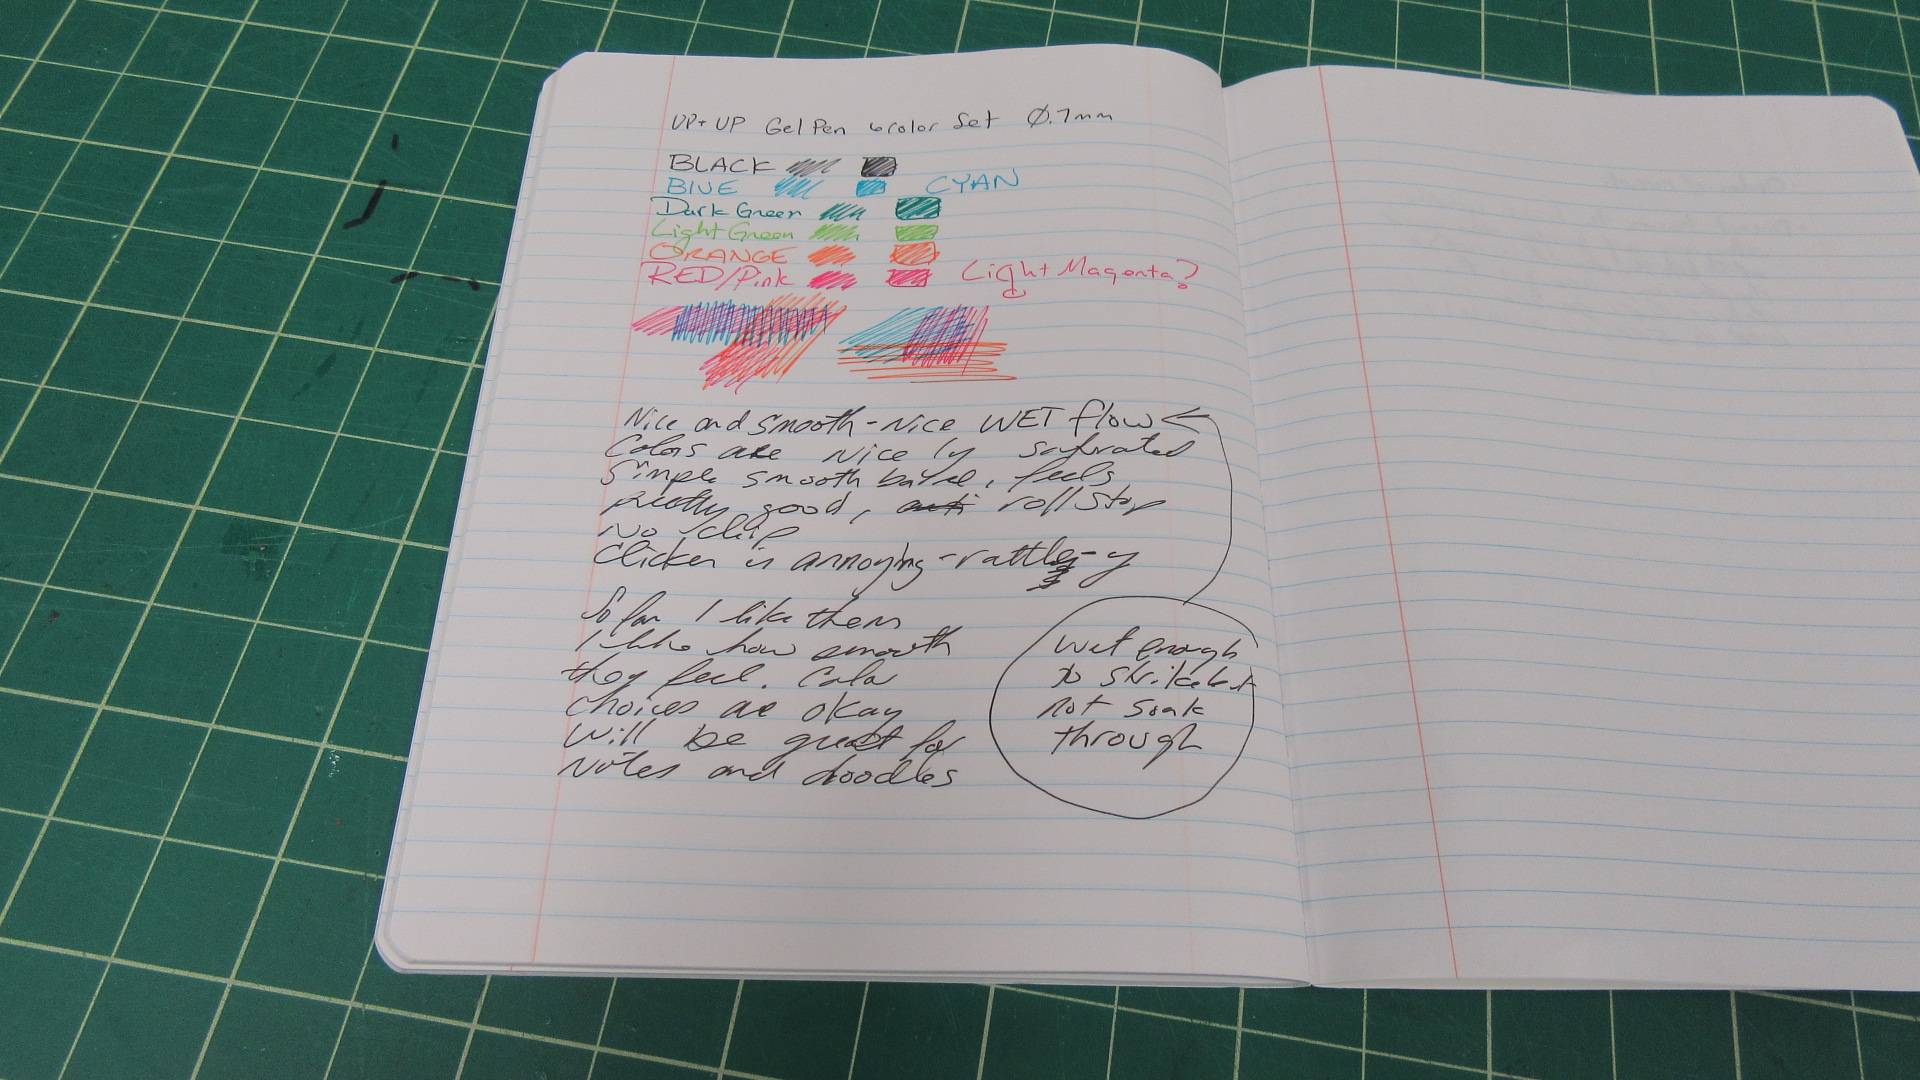 UP+UP Gel Pen 6 color Set Ø.7mm
BLACK
BLUE CYAN
Dark Green
Light Green
ORANGE
RED/Pink Light Magenta?
Nice and smooth - Nice WET flow
Colors are Nicely saturated
Simple smooth barrel, feels
pretty good, anti roll stop
No clip
Clicker is annoying - rattley-y
So far I like them
I like how smooth
they feel. Color
choices are okay
Will be great for
Notes and doodles
Wet enough
to strike but
not soak
through